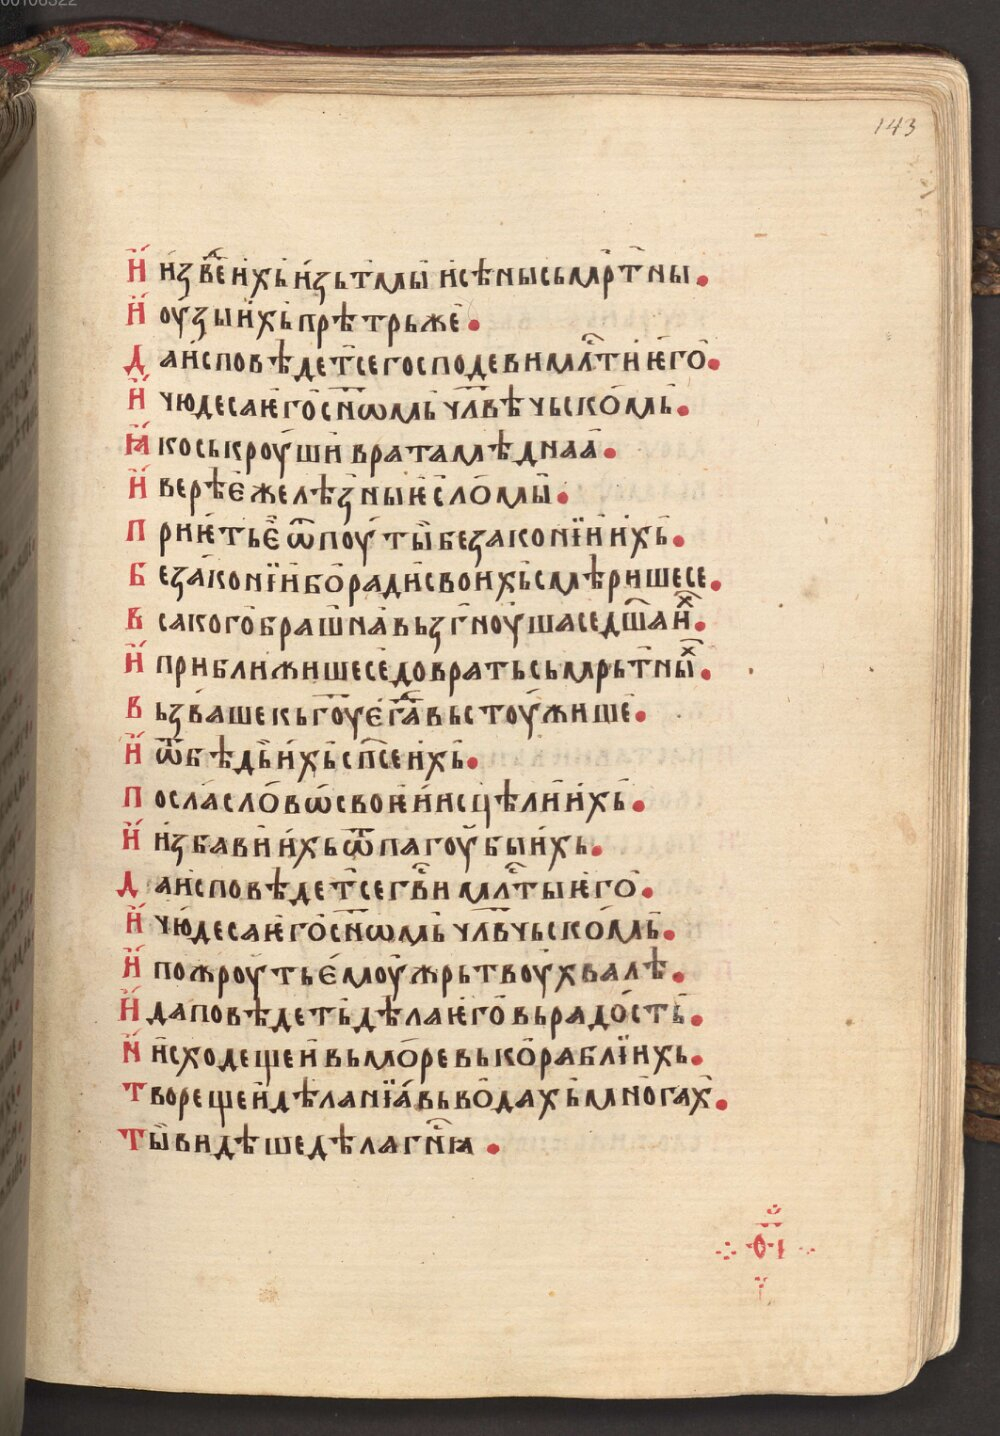 00108322
143
И҆ и҆звⷭ҇е ихь и҆зь тмы и҆ сѣны сьмр҃тны.
И҆ оу҆зы и҆хь прѣтрьже.
Да и҆сповѣдет се господеви млⷭ҇ти ѥго.
И҆ чюдеса ѥго сн҃ѡмь чл҃вѣчьскомь.
Ꙗко ськроуши врата мѣднаа.
И҆ верѣе желѣзныѥ сломы.
Приѥть е ѿ поути безаконїи ихь.
Безаконїи бо ради своихь смѣрише се.
Всакого брашна вьзгноуша се дш҃а иⷯ.
И҆ приближише се до врать сьмрьтныⷯ.
Вьзваше кь гоу҃ егⷣа вьстоужише.
И҆ ѿ бѣдь ихь сп҃се ихь.
Посла слово свое и исцѣли ихь.
И҆ избави ихь ѿ пагоубы ихь.
Да исповѣдет се гв҃и млⷭ҇ты ѥго.
И҆ чюдеса ѥго сн҃ѡмь чл҃вчьскомь.
И҆ пожроуть емоу жрьтвоу хвалѣ.
И҆ да поведеть дѣла ѥго вь радость.
И исходещеи вь море вь кораблїихь.
Творещеи дѣланїа вь водахь многах.
Ты видѣше дѣла гн҃ꙗ.